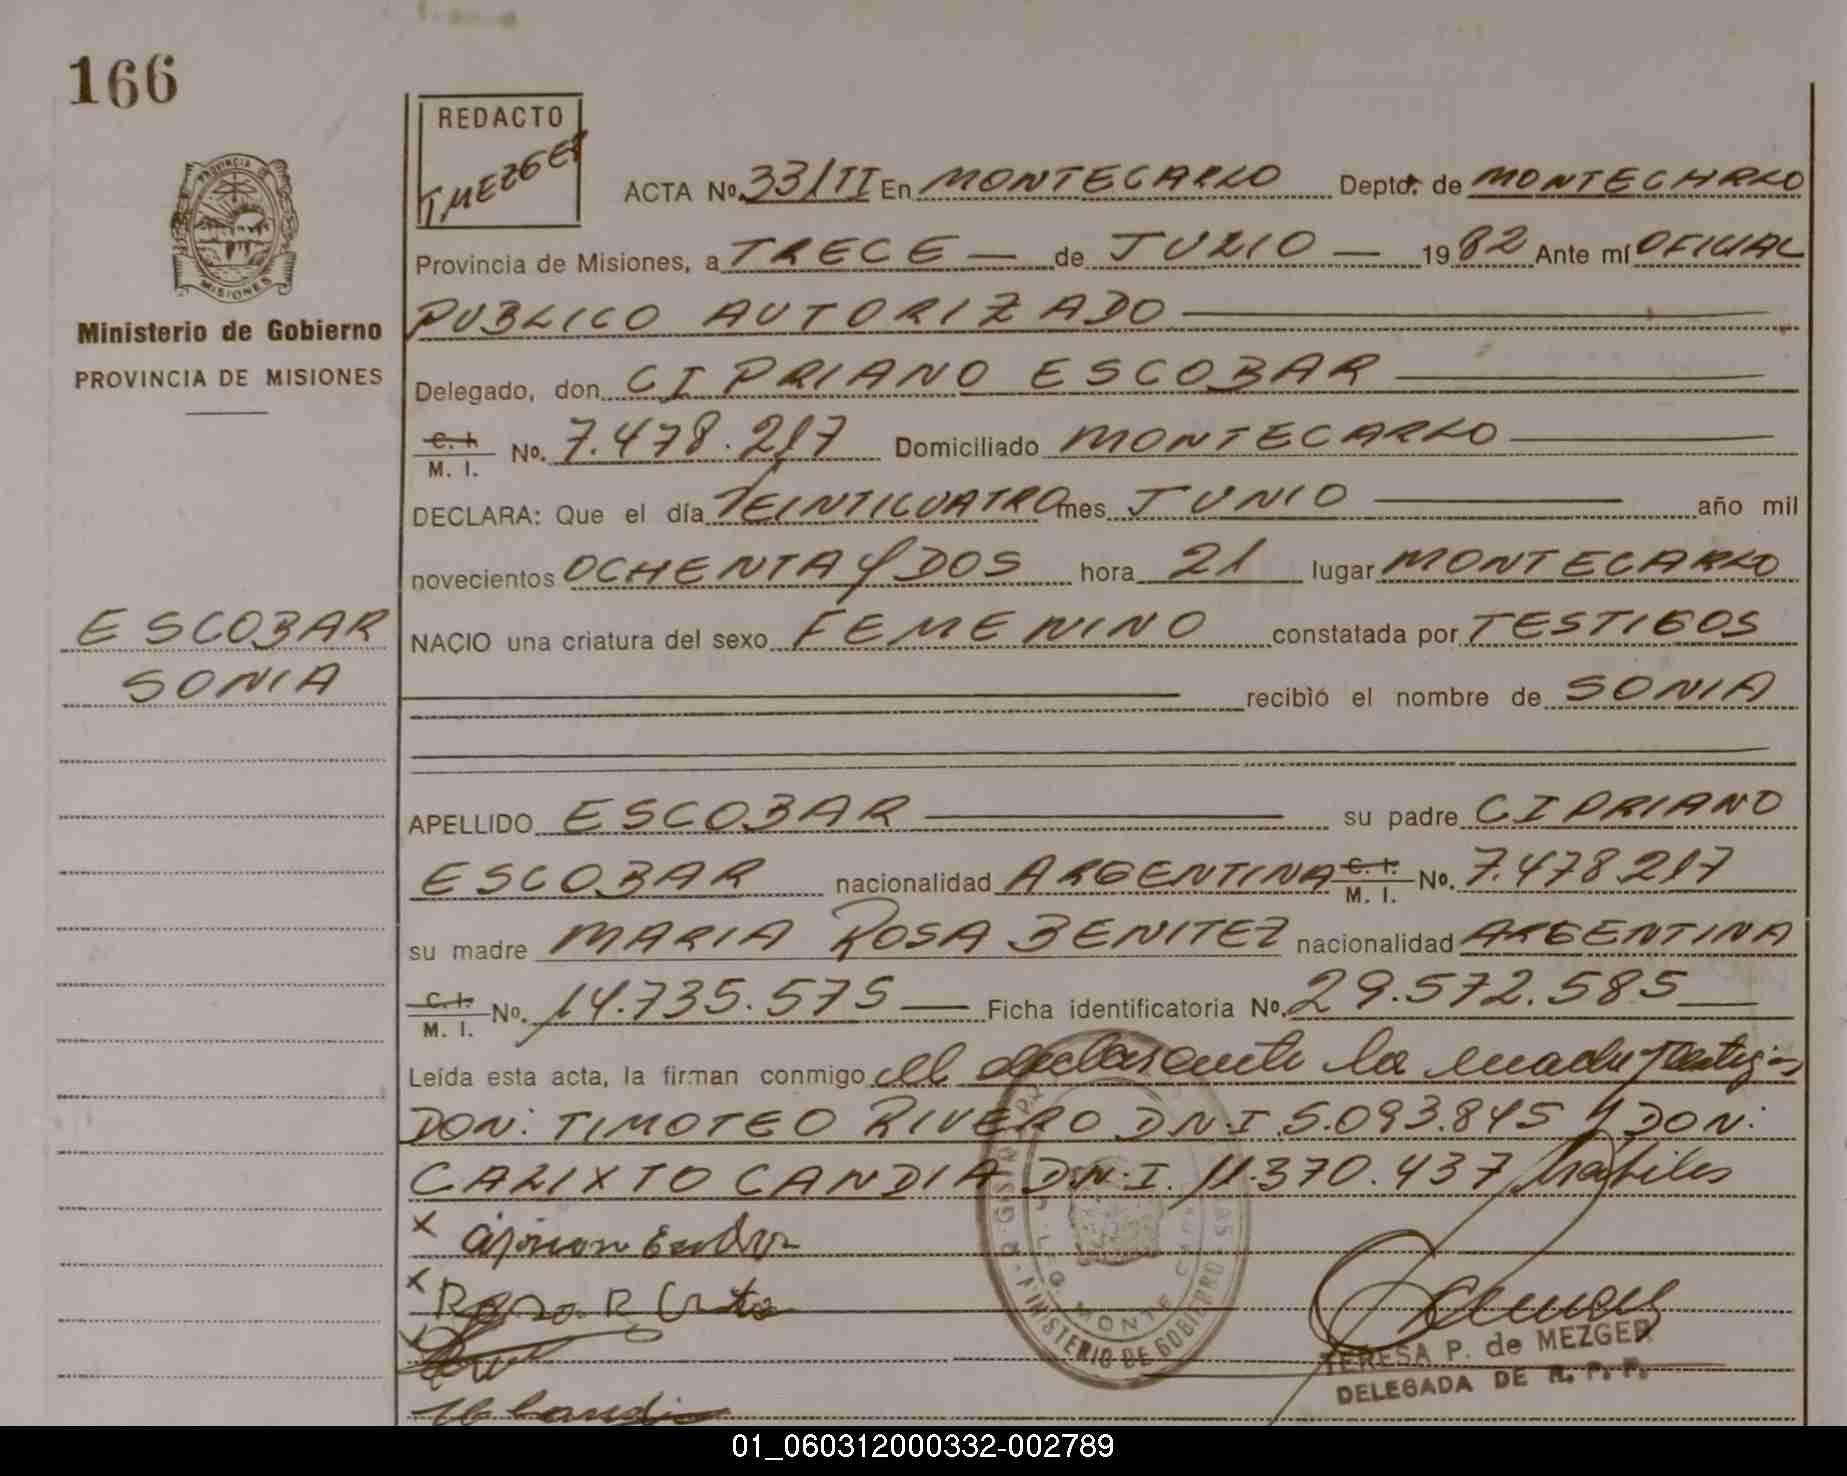 166
REDACTO
TMEZGER
PROVINCIA
MISIONES
Ministerio de Gobierno
PROVINCIA DE MISIONES
ESCOBAR
SONIA
ACTA No. 33/II En MONTECARLO Depto. de MONTECARLO
Provincia de Misiones, a TRECE — de JULIO — 1982 Ante mí OFICIAL
PUBLICO AUTORIZADO
Delegado, don CIPRIANO ESCOBAR
C. I. / M. I. No. 7.478.217 Domiciliado MONTECARLO
DECLARA: Que el día VEINTICUATRO mes JUNIO año mil
novecientos OCHENTA Y DOS hora 21 lugar MONTECARLO
NACIO una criatura del sexo FEMENINO constatada por TESTIGOS
recibió el nombre de SONIA
APELLIDO ESCOBAR su padre CIPRIANO
ESCOBAR nacionalidad ARGENTINA C. I. / M. I. No. 7.478.217
su madre MARIA ROSA BENITEZ nacionalidad ARGENTINA
C. I. / M. I. No. 14.735.575 — Ficha identificatoria No. 29.572.585
Leída esta acta, la firman conmigo el declarante la madre y testigos
DON: TIMOTEO RIVERO D.N.I. 5.093.845 Y DON:
CALIXTO CANDIA D.N.I. 11.370.437 habiles
MINISTERIO DE GOBIERNO
MONTE CARLO
TERESA P. de MEZGER
DELEGADA DE R. P. P.
01_060312000332-002789